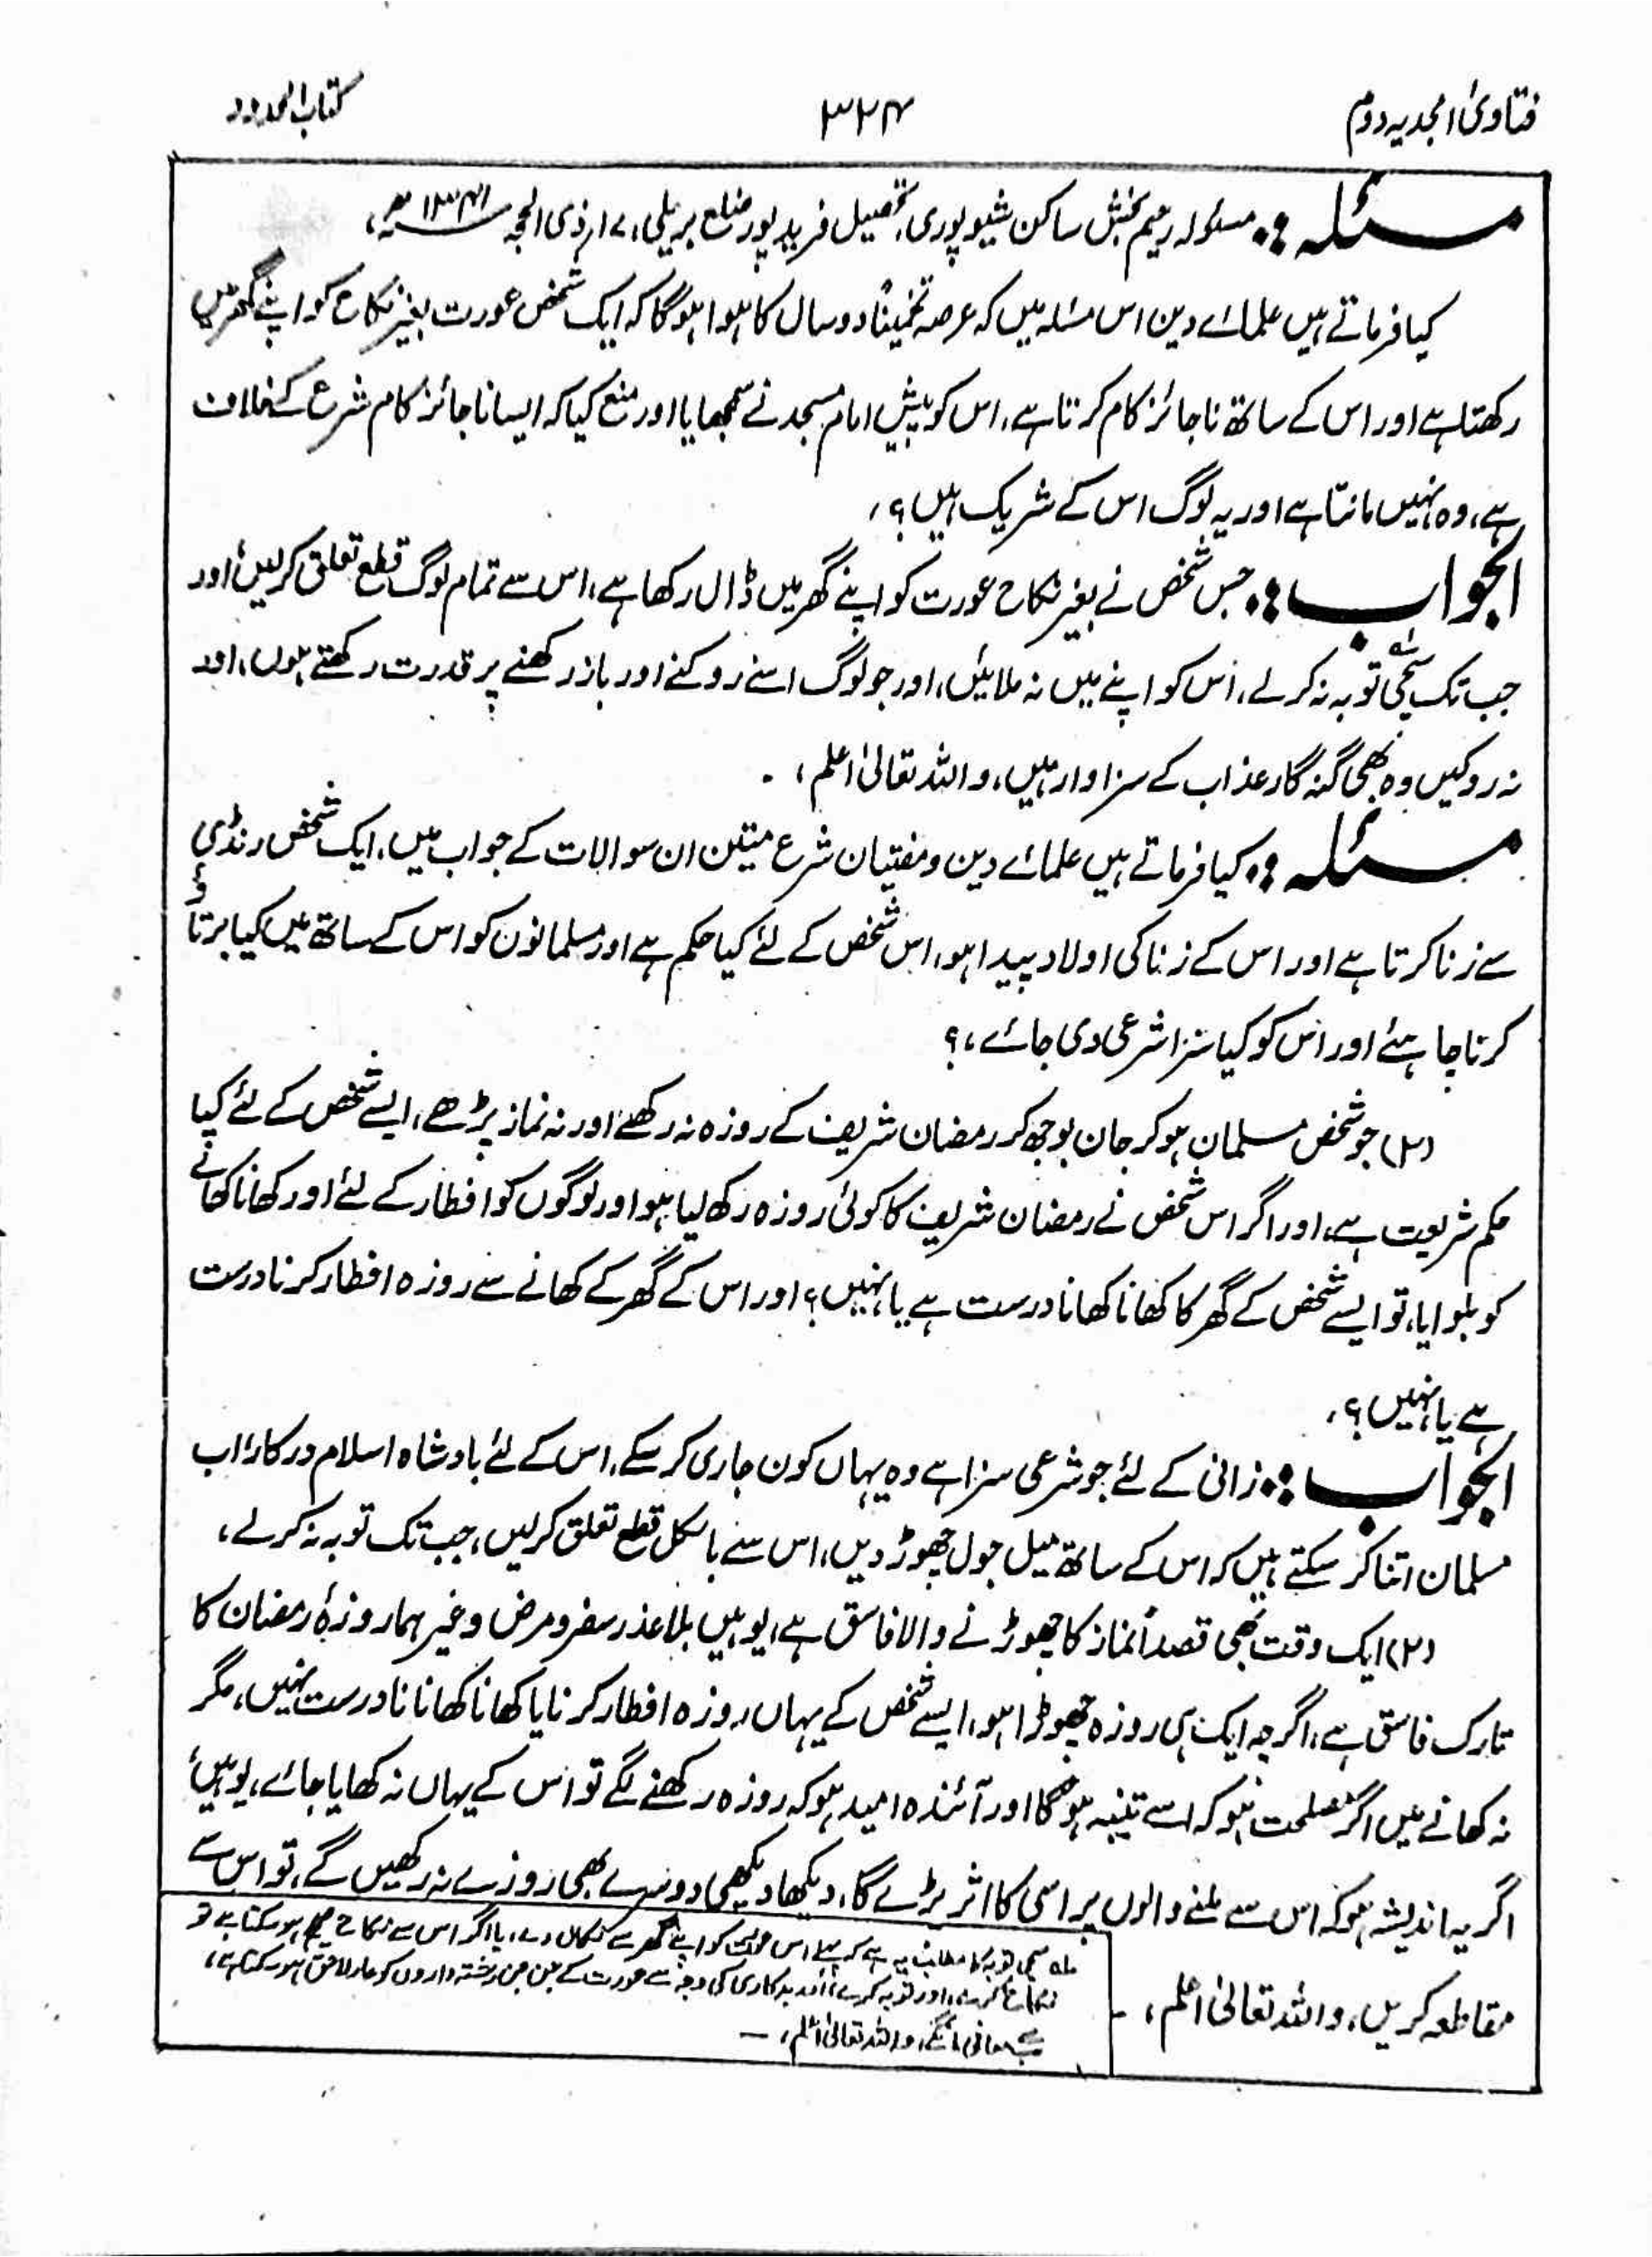 فتاویٰ امجدیہ دوم
۳۲۴
کتاب الحدود
مسئلہ :۔ مسئولہ رحیم بخش ساکن شیوپوری، تحصیل فرید پور ضلع بریلی، ۱۷ ذی الحجہ ۱۳۴۱ھ،
کیا فرماتے ہیں علمائے دین اس مسئلہ میں کہ عرصہ تخمیناً دو سال کا ہوا ہوگا کہ ایک شخص عورت بغیر نکاح کو اپنے گھر میں
رکھتا ہے اور اس کے ساتھ ناجائز کام کرتا ہے، اس کو پیش امام مسجد نے سمجھایا اور منع کیا کہ ایسا ناجائز کام شرع کے خلاف
ہے، وہ نہیں مانتا ہے اور یہ لوگ اس کے شریک ہیں؟،
الجواب :۔ جس شخص نے بغیر نکاح عورت کو اپنے گھر میں ڈال رکھا ہے، اس سے تمام لوگ قطع تعلق کرلیں، اور
جب تک سچی توبہ نہ کرلے، اس کو اپنے میں نہ ملائیں، اور جو لوگ اسے روکنے اور باز رکھنے پر قدرت رکھتے ہوں، اور
نہ روکیں وہ بھی گنہگار عذاب کے سزاوار ہیں، واللہ تعالیٰ اعلم،
مسئلہ :۔ کیا فرماتے ہیں علمائے دین و مفتیان شرع متین ان سوالات کے جواب میں، ایک شخص رنڈی
سے زنا کرتا ہے اور اس کے زنا کی اولاد پیدا ہو، اس شخص کے لئے کیا حکم ہے اور مسلمانوں کو اس کے ساتھ میں کیا برتاؤ
کرنا چاہئے اور اس کو کیا سزا شرعی دی جائے،؟
(۲) جو شخص مسلمان ہو کر جان بوجھ کر رمضان شریف کے روزہ نہ رکھے اور نہ نماز پڑھے، ایسے شخص کے لئے کیا
حکم شریعت ہے، اور اگر اس شخص نے رمضان شریف کا کوئی روزہ رکھ لیا ہو اور لوگوں کو افطار کے لئے اور کھانا کھانے
کو بلوایا، تو ایسے شخص کے گھر کا کھانا کھانا درست ہے یا نہیں؟ اور اس کے گھر کے کھانے سے روزہ افطار کرنا درست
ہے یا نہیں؟،
الجواب :۔ زانی کے لئے جو شرعی سزا ہے وہ یہاں کون جاری کرسکے، اس کے لئے بادشاہ اسلام درکار، اب
مسلمان اتنا کر سکتے ہیں کہ اس کے ساتھ میل جول چھوڑ دیں، اس سے بالکل قطع تعلق کرلیں، جب تک توبہ نہ کرلے،
(۲) ایک وقت بھی قصداً نماز کا چھوڑنے والا فاسق ہے، یوہیں بلا عذر سفر و مرض وغیرہما روزۂ رمضان کا
تارک فاسق ہے، اگرچہ ایک ہی روزہ چھوڑا ہو، ایسے شخص کے یہاں روزہ افطار کرنا یا کھانا کھانا نادرست نہیں، مگر
نہ کھانے میں اگر مصلحت ہو کہ اسے تنبیہ ہوگا اور آئندہ امید ہو کہ روزہ رکھنے لگے تو اس کے یہاں نہ کھایا جائے، یوہیں
اگر یہ اندیشہ ہو کہ اس سے ملنے والوں پر اسی کا اثر پڑے گا، دیکھا دیکھی دوسرے بھی روزے نہ رکھیں گے، تو اس سے
مقاطعہ کریں، واللہ تعالیٰ اعلم، ـ
سچی توبہ کا مطلب یہ ہے کہ پہلے اس عورت کو اپنے گھر سے نکال دے، یا اگر اس سے نکاح صحیح ہو سکتا ہے تو
نکاح کرے، اور توبہ کرے، اور بدکاری کی وجہ سے عورت کے جن جن رشتہ داروں کو عار لاحق ہو سکتا ہے،
سب سے معافی مانگے، واللہ تعالیٰ اعلم، ـ